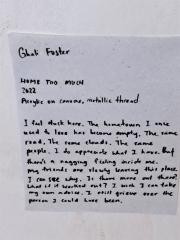 Ghali Foster
HOME TOO MUCH
2022
Acrylic on canvas, metallic thread
I feel stuck here. The hometown I once
used to love has become empty. The same
road, The same clouds. The same
people. I do appreciate what I have. But
there's a nagging feeling inside me.
My friends are slowly leaving this place.
I can see why. Is there more out there?
What if it worked out? I wish I can take
my own advice. I still grieve over the
person I could have been.